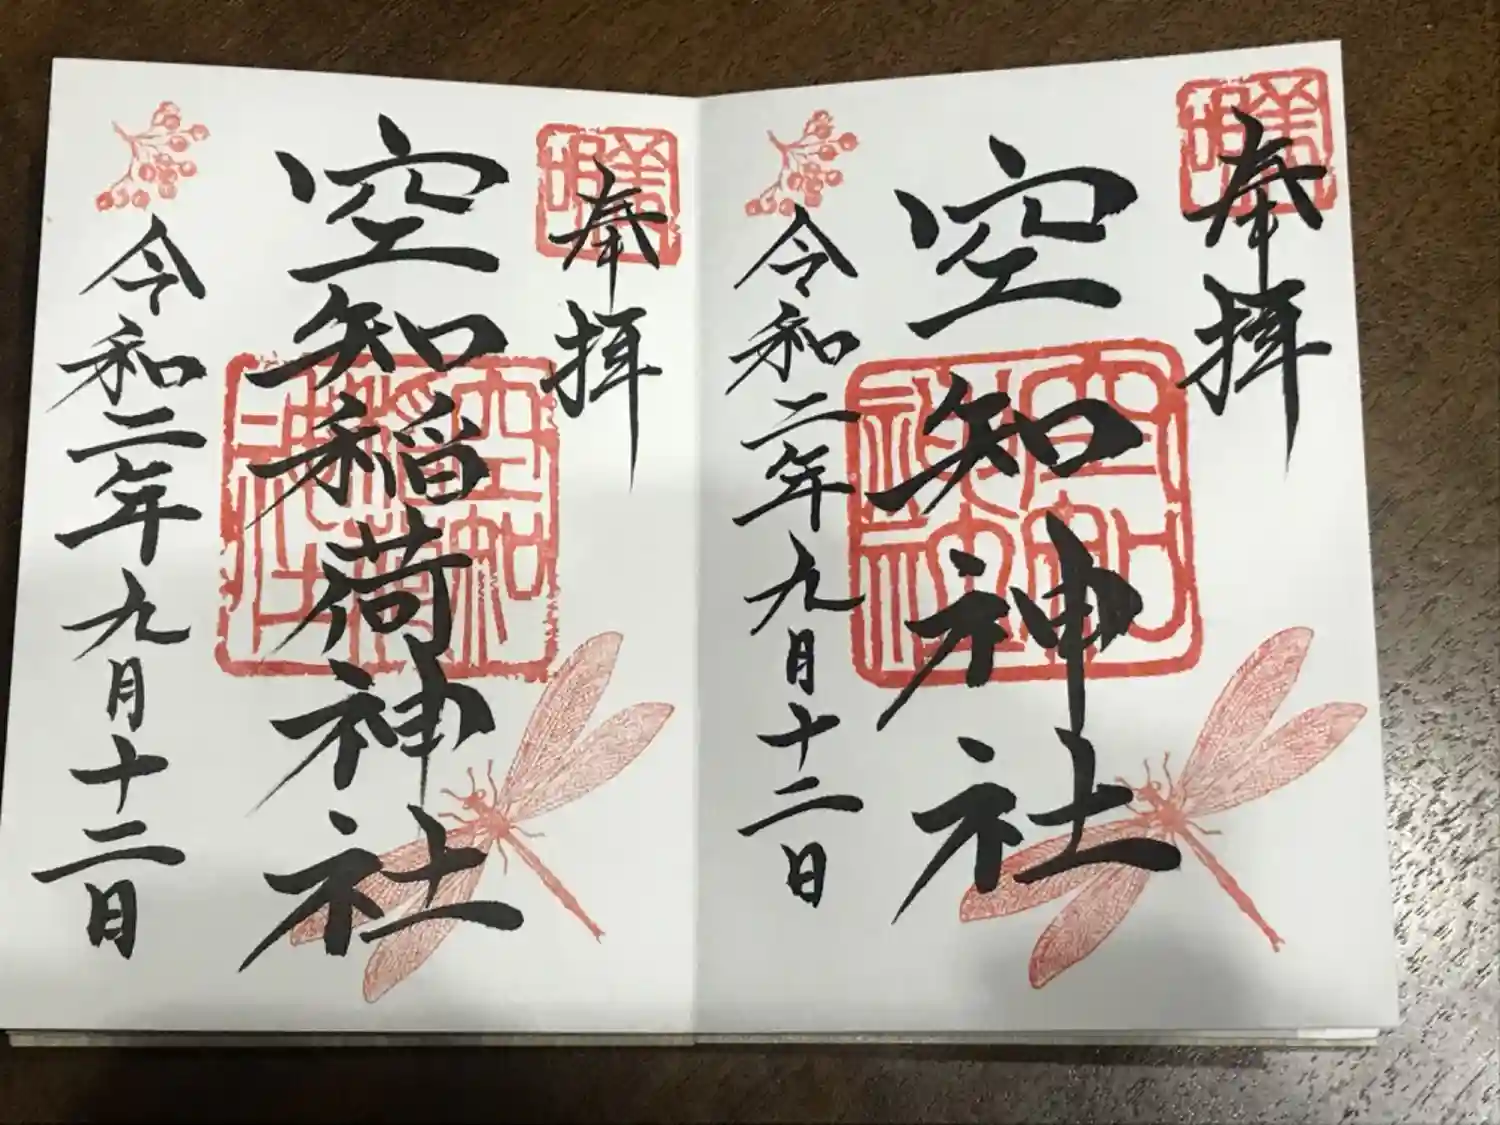 奉拝
空知神社
令和二年九月十二日
奉拝
空知稲荷神社
令和二年九月十二日
美唄
空知神社
美唄